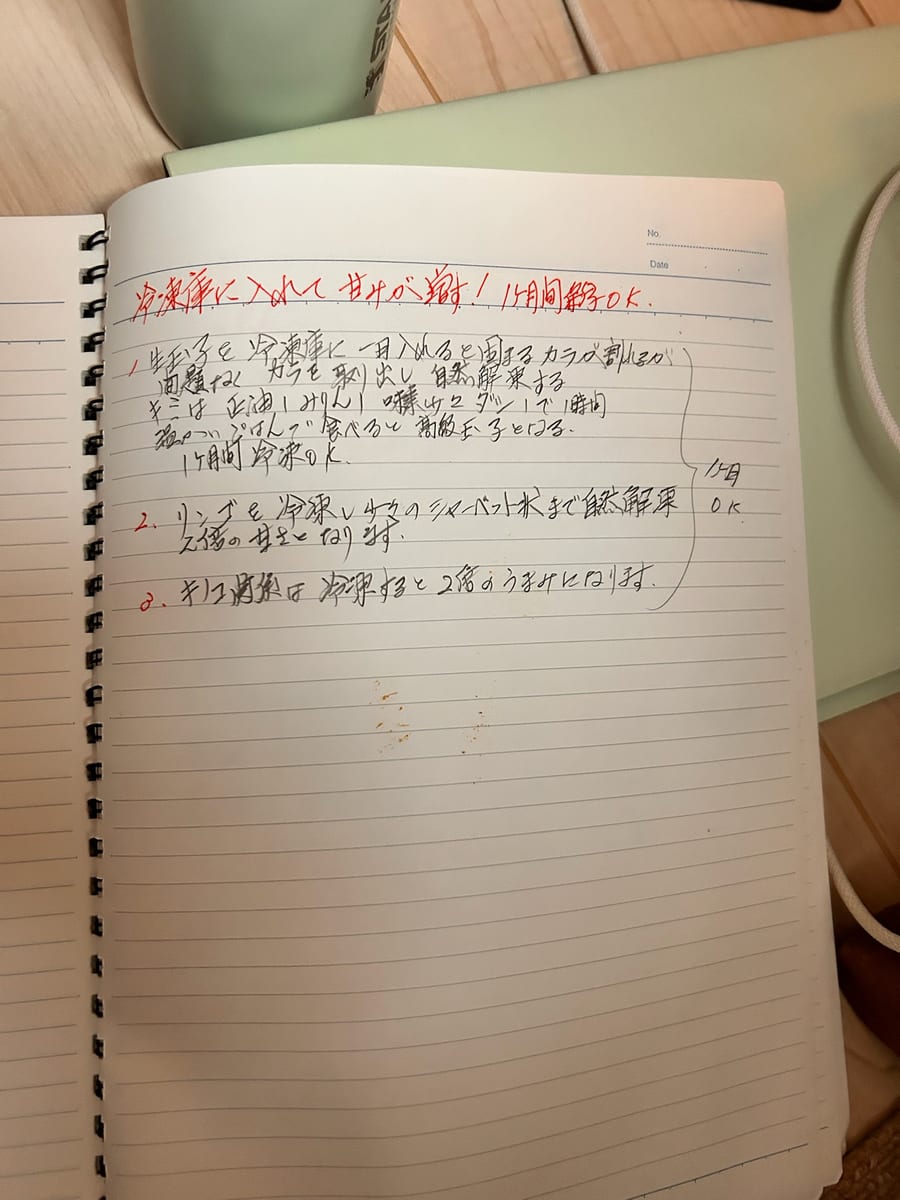 No.
Date
冷凍庫に入れて甘みが増す! 1ヶ月間保存OK.
1 生玉子を冷凍庫に一日入れると固まるカラが割れるが
問題なくカラを取り出し自然解凍する
キミは正油1みりん1 ダシ1で1時間
ごはんで食べると高級玉子となる.
1ヶ月間冷凍OK.
1ヶ月
OK
2. リンゴを冷凍し少々のシャーベット状まで自然解凍
2倍の甘さとなります.
3. キノコ関係は冷凍すると2倍のうまみになります.